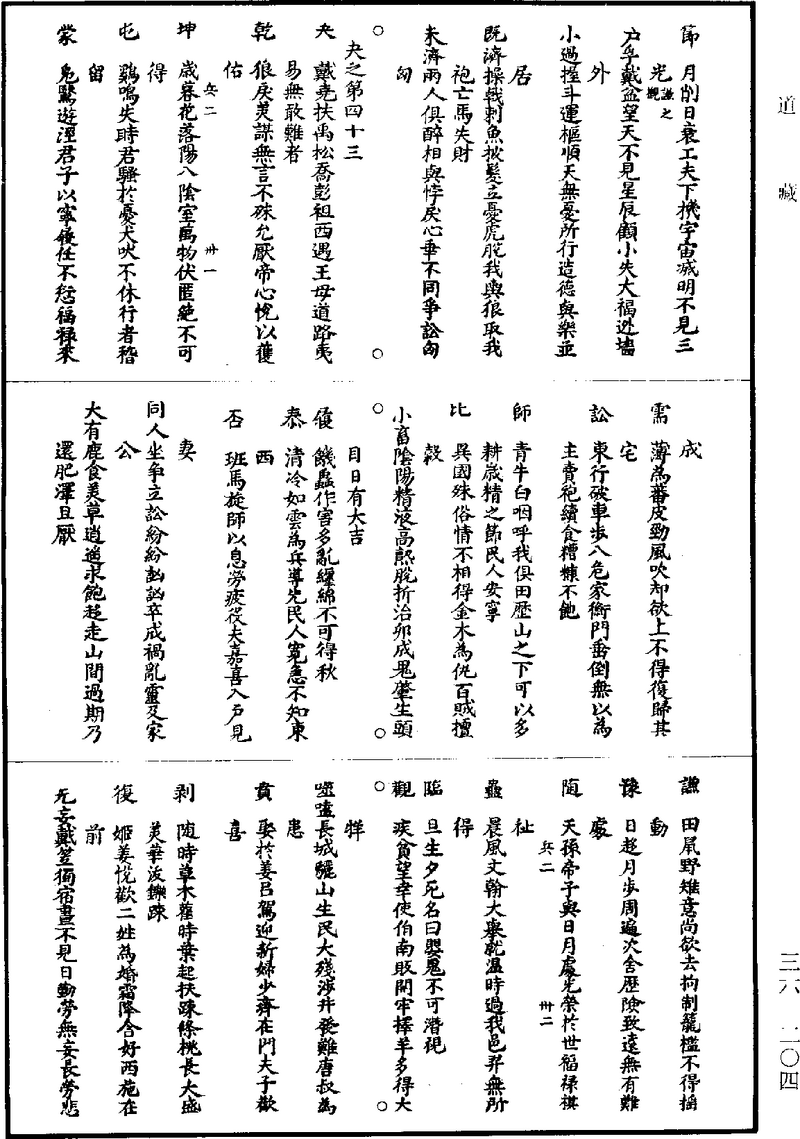 道藏
節　月削日衰工夫下機宇宙滅明不見三
光謙之觀
戶孚戴盆望天不見星辰顧小失大福逃墻
外
小過握斗運樞順天無憂所行造德與樂並
居
既濟操戟刺魚披髮立憂虎脫我輿狼取我
袍亡馬失財
未濟兩人俱醉相與悖戾心垂不同爭訟匈
匈
夬之第四十三
夬　戴堯扶禹松喬彭祖西遇王母道路夷
易無敢難者
乾　狼戾美謀無言不殊允厭帝心悅以獲
佑
兵二　卅一
坤　歲暮花落陽入陰室萬物伏匿絕不可
得
屯　鷄鳴失時君騷於憂犬吠不休行者稽
留
蒙　鳧鷖遊涇君子以寧履任不愆福祿來
成
需　薄為蕃皮勁風吹却欲上不得復歸其
宅
訟　東行破車步入危家衡門垂倒無以為
主賣袍續食糟糠不飽
師　青牛白咽呼我俱田歷山之下可以多
耕歲精之節民人安寧
比　異國殊俗情不相得金木為仇百賊擅
穀
小畜陰陽精液高熬脫折治卵成鬼肇生頭
目日有大吉
履　饑蝨作害多亂纏綿不可得秋
泰　清冷如雲為兵導先民人寃急不知東
西
否　班馬旋師以息勞疲役夫嘉喜入戶見
妻
同人坐爭立訟紛紛訩訩卒成禍亂靈及家
公
大有鹿食美草逍遙求飽趍走山間過期乃
還肥澤且厭
謙　田鼠野雉意尚欲去拘制籠檻不得搖
動
豫　日趍月步周遍次舍歷險致遠無有難
處
隨　天孫帝子與日月處光榮於世福祿祺
祉
兵二　卅二
蠱　晨風文翰大舉就溫時過我邑羿無所
得
臨　旦生夕死名曰嬰鬼不可潛視
觀　疾貧望幸使伯南販開牢擇羊多得大
牂
噬嗑長城驪山生民大殘涉井發難唐叔為
患
賁　娶於姜呂駕迎新婦少齊在門夫子歡
喜
剥　隨時草木舊時葉起扶疎條桃長大盛
美華沒鑠踈
復　姬姜悅歡二姓為婚霜降合好西施在
前
无妄戴笠獨宿晝不見日勤勞無妄長勞悲
三六　二〇四